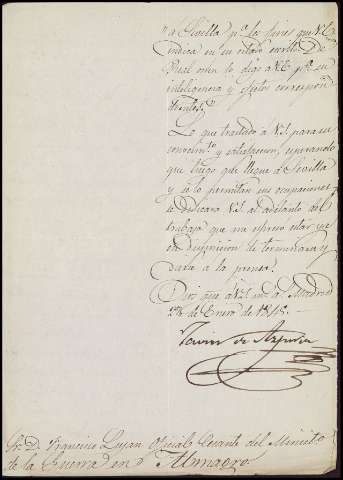 á Sevilla pª los fines que V.E.
indica en su citado escrito. De
Real orn lo digo á V.E. pª su
inteligencia y efectos correspon
dientes."
Lo que traslado á V.S. para su
conocimto y satisfaccion, esperando
que luego que llegue á Sevilla
y se lo permitan sus ocupaciones
se dedicara V.S. al adelanto del
trabajo que me espreso estar ya
en disposicion de terminarse y
darse á la prensa.
Dios gue á V.S. ms as Madrid
de Enero de 1845.
Sr. D. Francisco Lujan Oficial Cesante del Ministo
de la Guerra en Almagro.